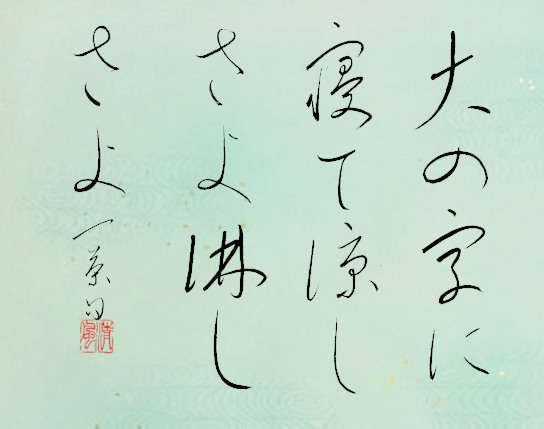 大の字に
寝て涼し
さよ淋し
さよ
一茶